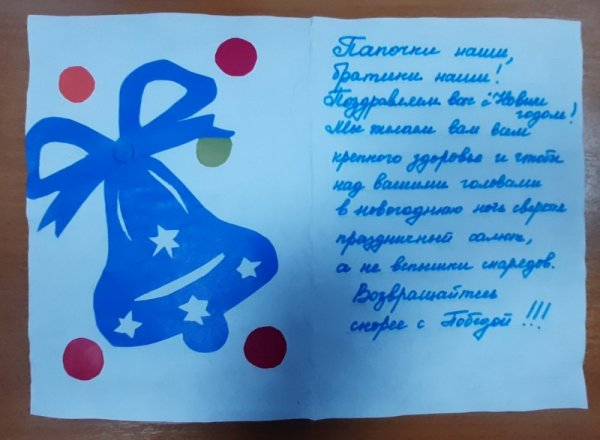 Папочки наши,
братики наши!
Поздравляем вас с Новым
годом!
Мы желаем вам всем
крепкого здоровье и чтобы
над вашими головами
в новогоднюю ночь сверкал
праздничный салют,
а не вспышки снарядов.
Возвращайтесь
скорее с Победой!!!